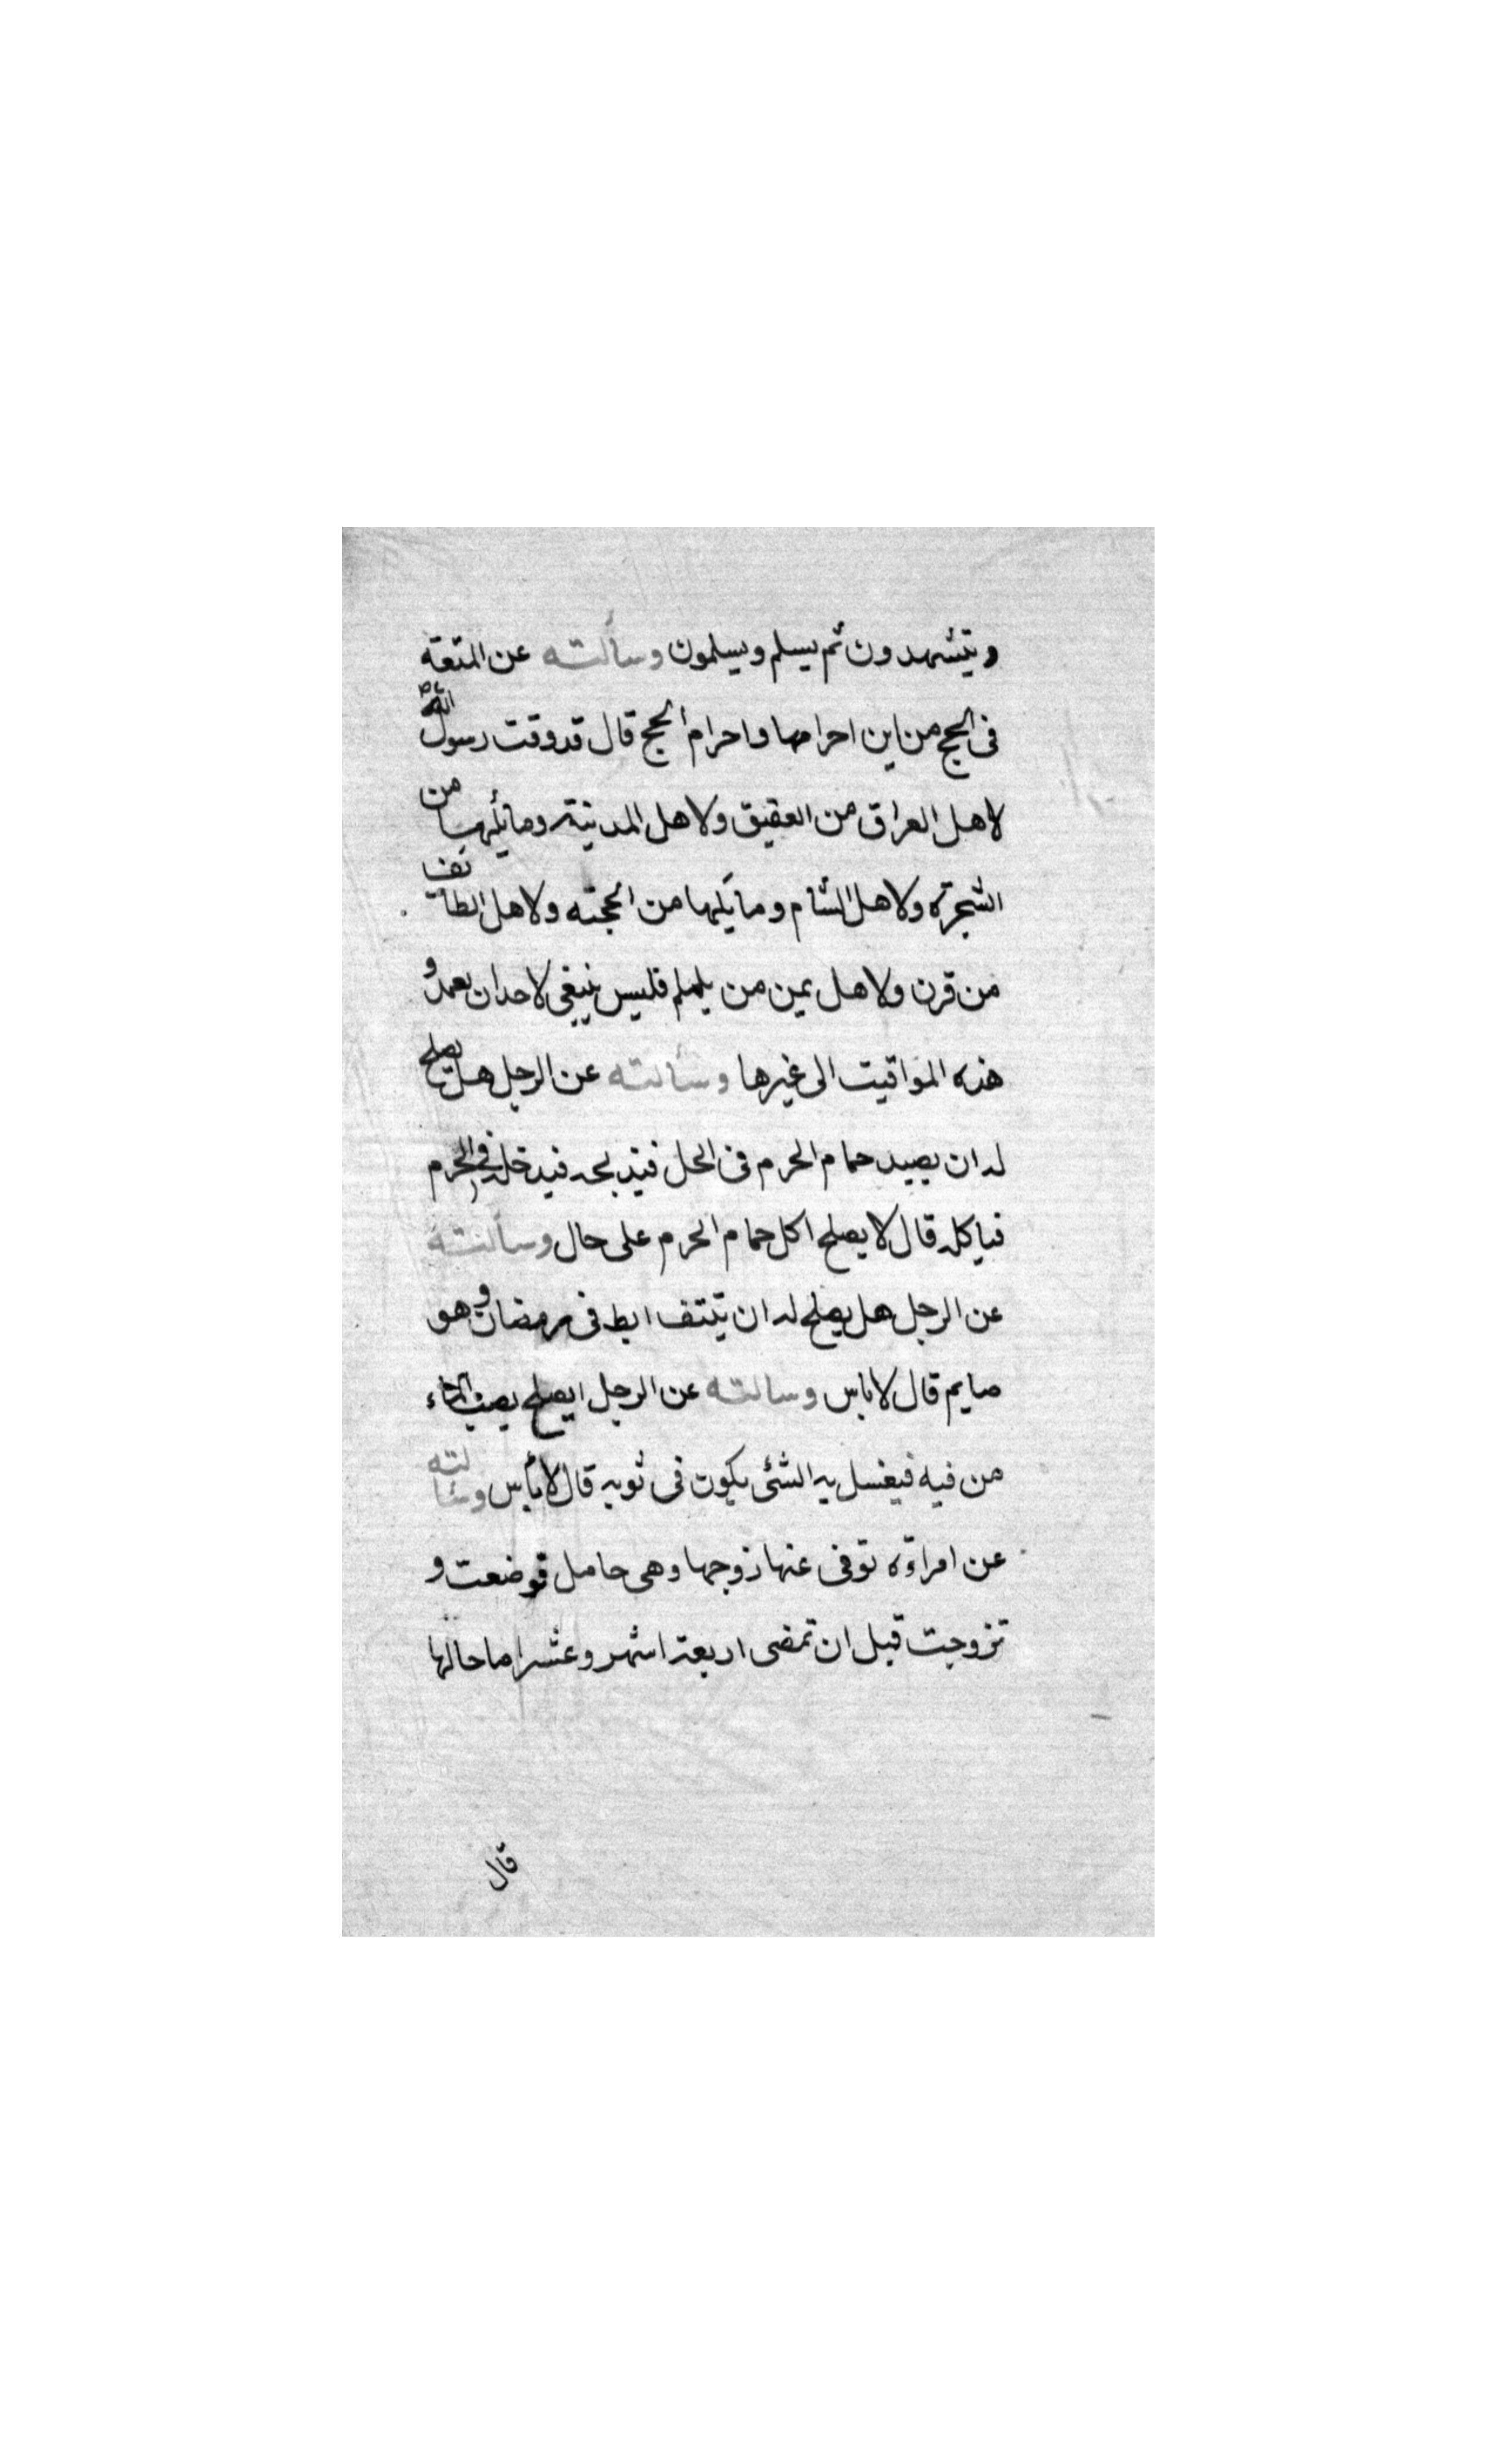 ويتشهدون ثم يسلم ويسلمون وسألته عن المتعة
فى الحج من اين احرامها واحرام الحج قال قد وقت رسول الله ص
لاهل العراق من العقيق ولاهل المدينة وما يليها من
الشجرة ولاهل الشام وما يليها من الجحفه ولاهل الطائف
من قرن ولاهل يمن من يلملم فليس ينبغى لاحد ان يعدو
هذه المواقيت الى غيرها وسألته عن الرجل هل يصلح
له ان يصيد حمام الحرم فى الحل فيذبحه فيدخله فى الحرم
فياكله قال لا يصلح اكل حمام الحرم على حال وسألته
عن الرجل هل يصلح له ان ينتف ابط فى رمضان وهو
صايم قال لا باس وسالته عن الرجل ايصلح يصب الماء
من فيه فيغسل به الشئ يكون فى ثوبه قال لا بأس وسألته
عن امراة توفى عنها زوجها وهى حامل فوضعت و
تزوجت قبل ان تمضى اربعة اشهر وعشرا ما حالها
قال